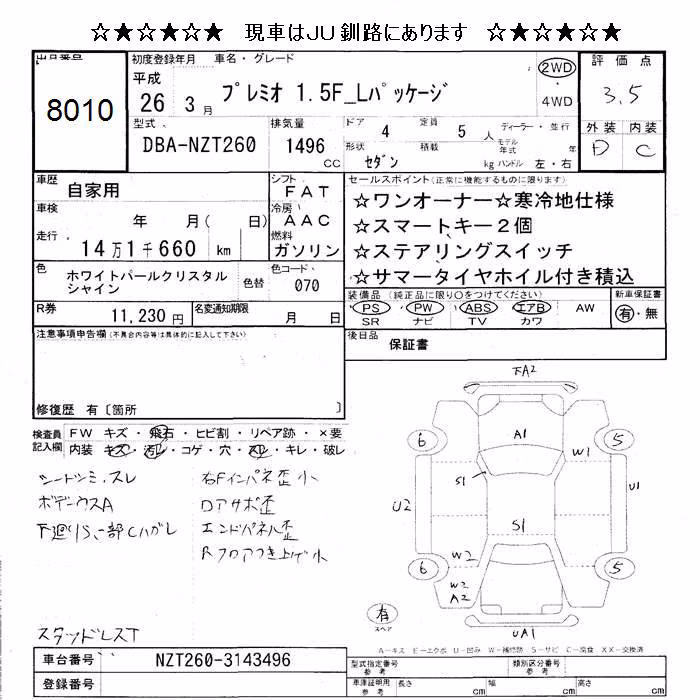 ☆★☆★☆★ 現車はJU釧路にあります ☆★☆★☆★
出品番号
8010
初度登録年月 車名・グレード
平成
26 3月 プレミオ 1.5F_Lパッケージ
2WD
4WD
評価点
3.5
外装 内装
D C
型式 排気量 ドア 4 定員 5人 ディーラー・並行
DBA-NZT260 1496 cc
形状 セダン 積載 kg モデル年式 年
ハンドル 左・右
車歴 自家用
シフト FAT
車検 年 月( 日)
冷房 AAC
走行 14万1千660 km
燃料 ガソリン
セールスポイント(正常に機能するものに限ります)
☆ワンオーナー☆寒冷地仕様
☆スマートキー2個
☆ステアリングスイッチ
☆サマータイヤホイル付き積込
色 ホワイトパールクリスタルシャイン
色替
色コード 070
装備品(純正品に限り○をつけてください)
PS PW ABS エアB AW
SR ナビ TV カワ
新車保証書
有・無
R券 11,230円 名変通知期限 月 日
注意事項申告欄(不具合内容等は具体的に記入して下さい)
後日品 保証書
修復歴 有〔箇所 〕
検査員記入欄
FW キズ・飛石・ヒビ割・リペア跡・×要
内装 キズ・汚レ・コゲ・穴・スレ・キレ・破レ
シートシミ、スレ
ボデーウスA
下廻りS、一部Cハガレ
右Fインパネ歪小
ロアサポ歪
エンドパネル歪
Rフロアつき上げ小
スタッドレスT
FA2
6 A1 5
W1
S1
U2 U1
S1
W2
6 5
W2
A2
有
スペア
UA1
A-キズ E-エクボ U-凹み W-補修跡 S-サビ C-腐食 XX-交換済
車台番号 NZT260-3143496
登録番号
型式指定番号 参考 類別区分番号 参考
車庫証明用 参考 長さ cm 幅 cm 高さ cm